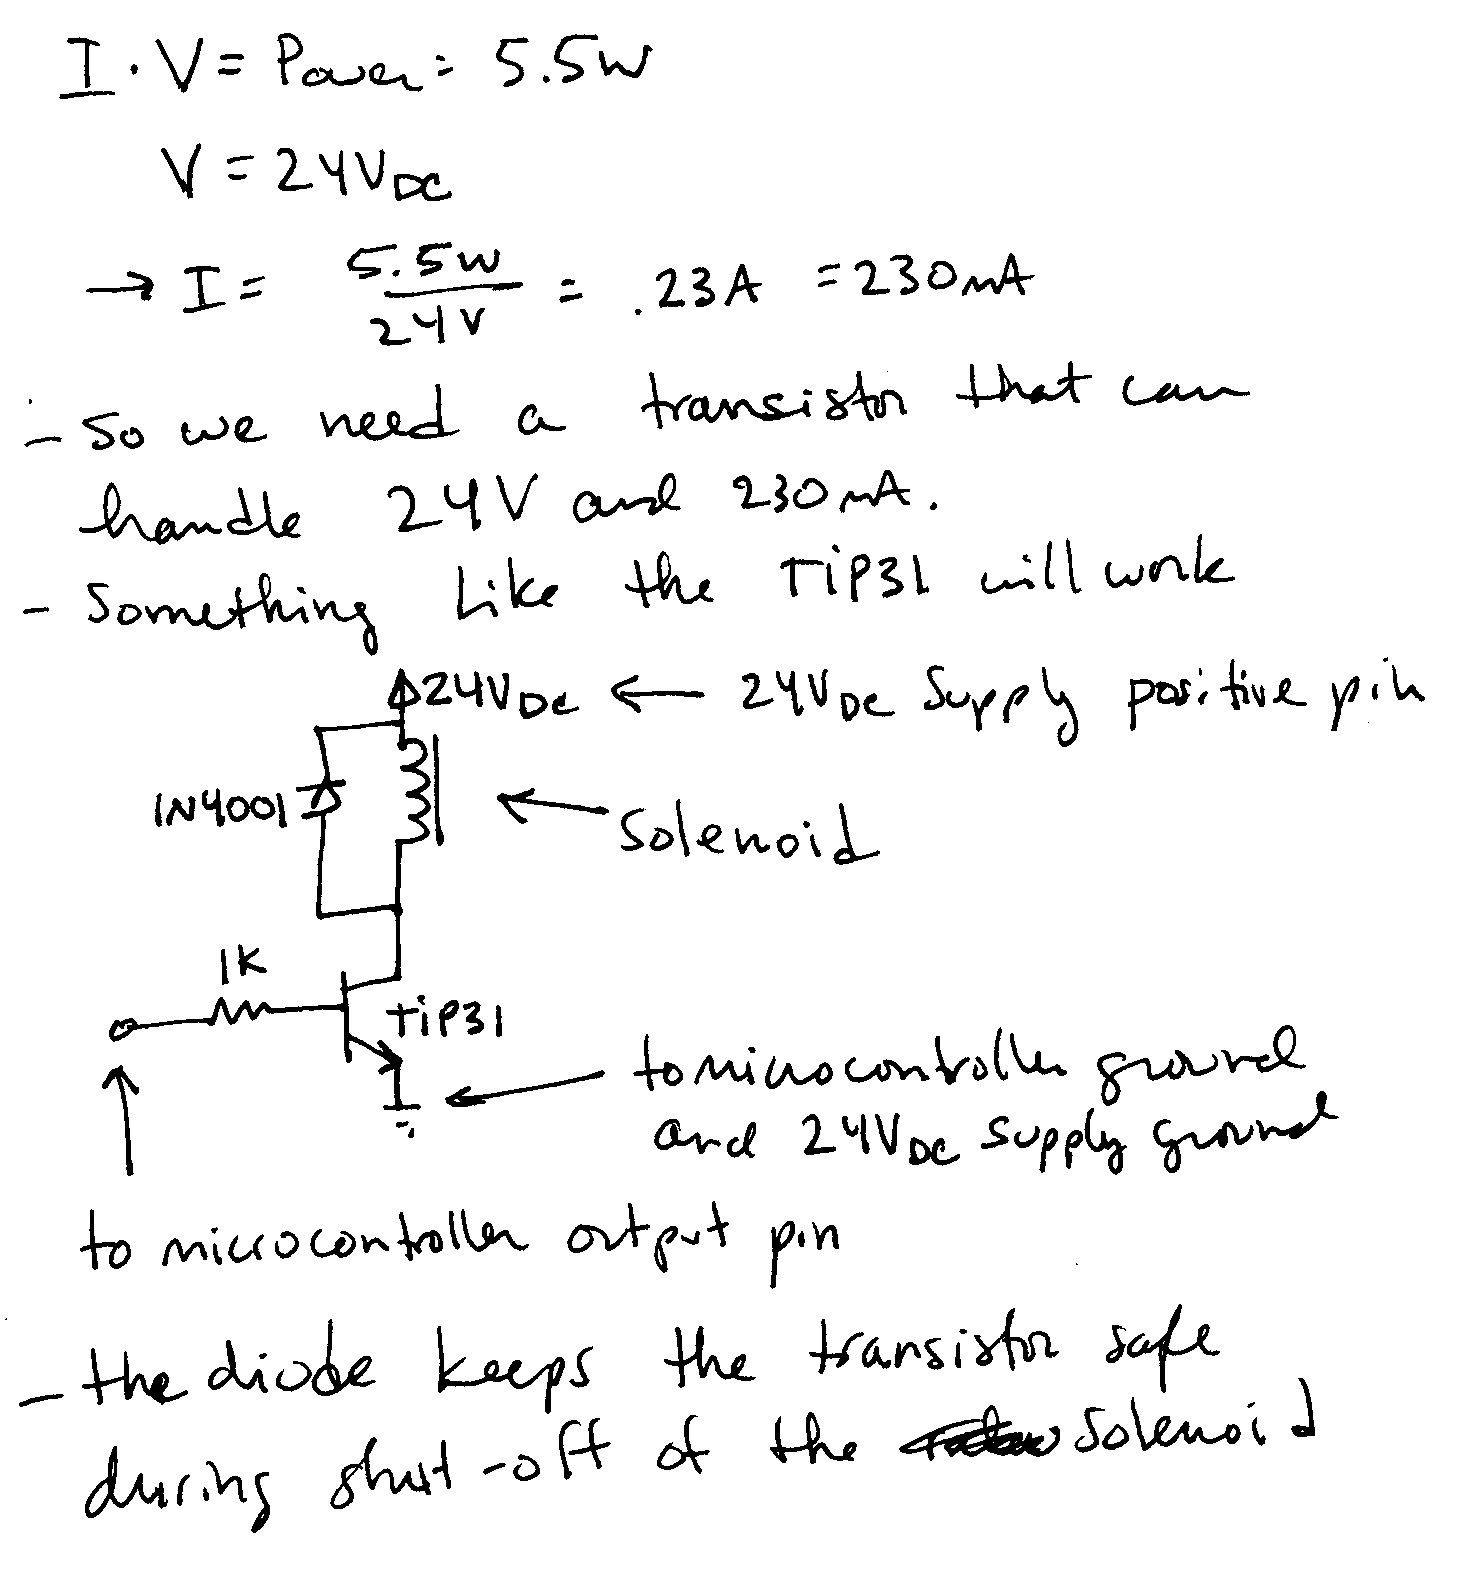 I · V = Power = 5.5W
V = 24VDC
→ I = 5.5W / 24V = .23A = 230mA
- So we need a transistor that can
handle 24V and 230mA.
- Something Like the TiP31 will work
24VDC ← 24VDC Supply positive pin
1N4001
Solenoid
1K
TiP31
to microcontroller ground
and 24VDC supply ground
to microcontroller output pin
- the diode keeps the transistor safe
during shut-off of the solenoid